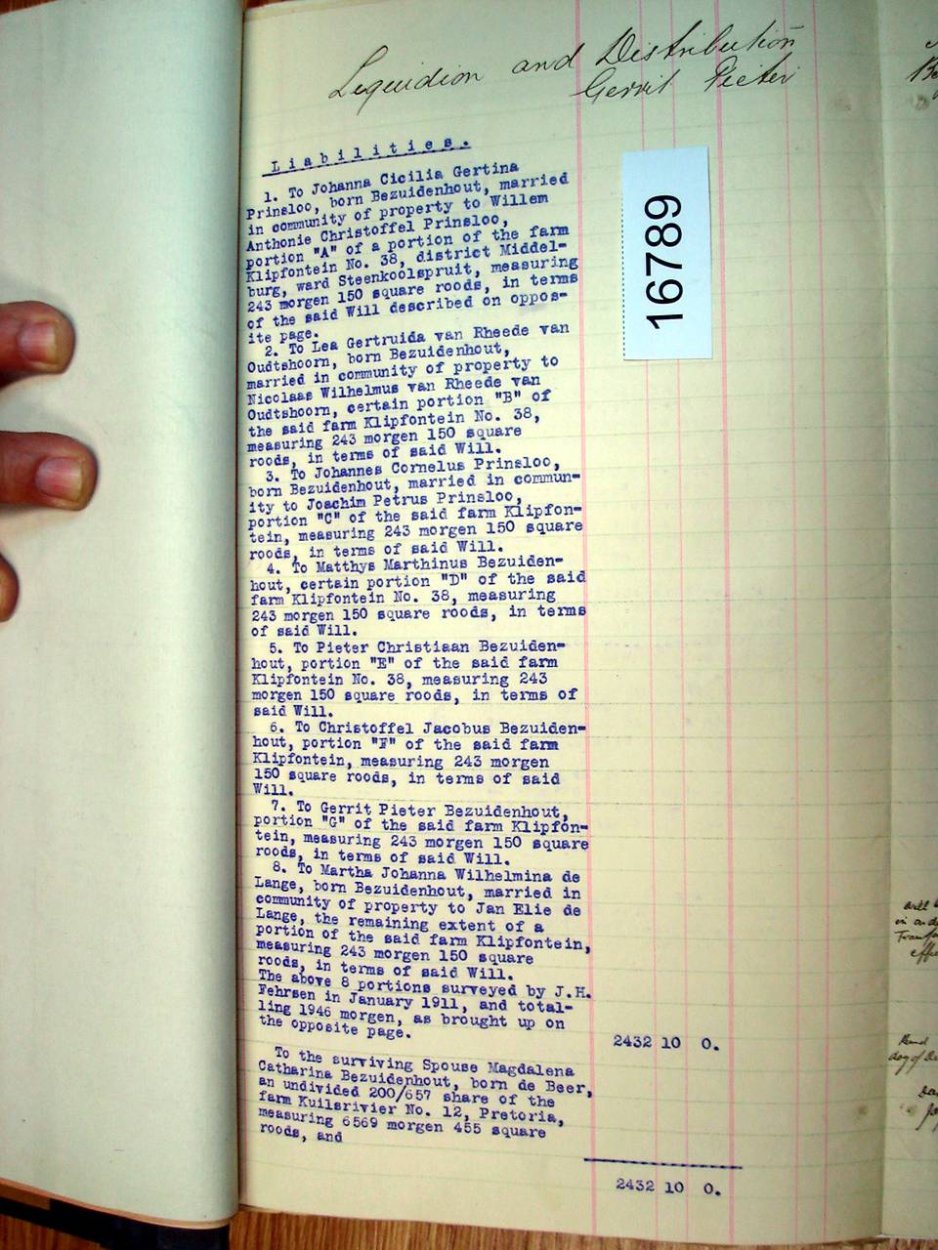 Liquidion and Distribution
Gerrit Pieter
16789
Liabilities.
1. To Johanna Cicilia Gertina
Prinsloo, born Bezuidenhout, married
in community of property to Willem
Anthonie Christoffel Prinsloo,
portion "A" of a portion of the farm
Klipfontein No. 38, district Middel-
burg, ward Steenkoolspruit, measuring
243 morgen 150 square roods, in terms
of the said Will described on oppos-
ite page.
2. To Lea Gertruida van Rheede van
Oudtshoorn, born Bezuidenhout,
married in community of property to
Nicolaas Wilhelmus van Rheede van
Oudtshoorn, certain portion "B" of
the said farm Klipfontein No. 38,
measuring 243 morgen 150 square
roods, in terms of said Will.
3. To Johannes Cornelus Prinsloo,
born Bezuidenhout, married in commun-
ity to Joachim Petrus Prinsloo,
portion "C" of the said farm Klipfon-
tein, measuring 243 morgen 150 square
roods, in terms of said Will.
4. To Matthys Marthinus Bezuiden-
hout, certain portion "D" of the said
farm Klipfontein No. 38, measuring
243 morgen 150 square roods, in terms
of said Will.
5. To Pieter Christiaan Bezuiden-
hout, portion "E" of the said farm
Klipfontein No. 38, measuring 243
morgen 150 square roods, in terms of
said Will.
6. To Christoffel Jacobus Bezuiden-
hout, portion "F" of the said farm
Klipfontein, measuring 243 morgen
150 square roods, in terms of said
Will.
7. To Gerrit Pieter Bezuidenhout,
portion "G" of the said farm Klipfon-
tein, measuring 243 morgen 150 square
roods, in terms of said Will.
8. To Martha Johanna Wilhelmina de
Lange, born Bezuidenhout, married in
community of property to Jan Elie de
Lange, the remaining extent of a
portion of the said farm Klipfontein,
measuring 243 morgen 150 square
roods, in terms of said Will.
The above 8 portions surveyed by J.H.
Fehrsen in January 1911, and total-
ling 1946 morgen, as brought up on
the opposite page. 2432 10 0.
To the surviving Spouse Magdalena
Catharina Bezuidenhout, born de Beer,
an undivided 200/657 share of the
farm Kuilsrivier No. 12, Pretoria,
measuring 6569 morgen 455 square
roods, and
2432 10 0.